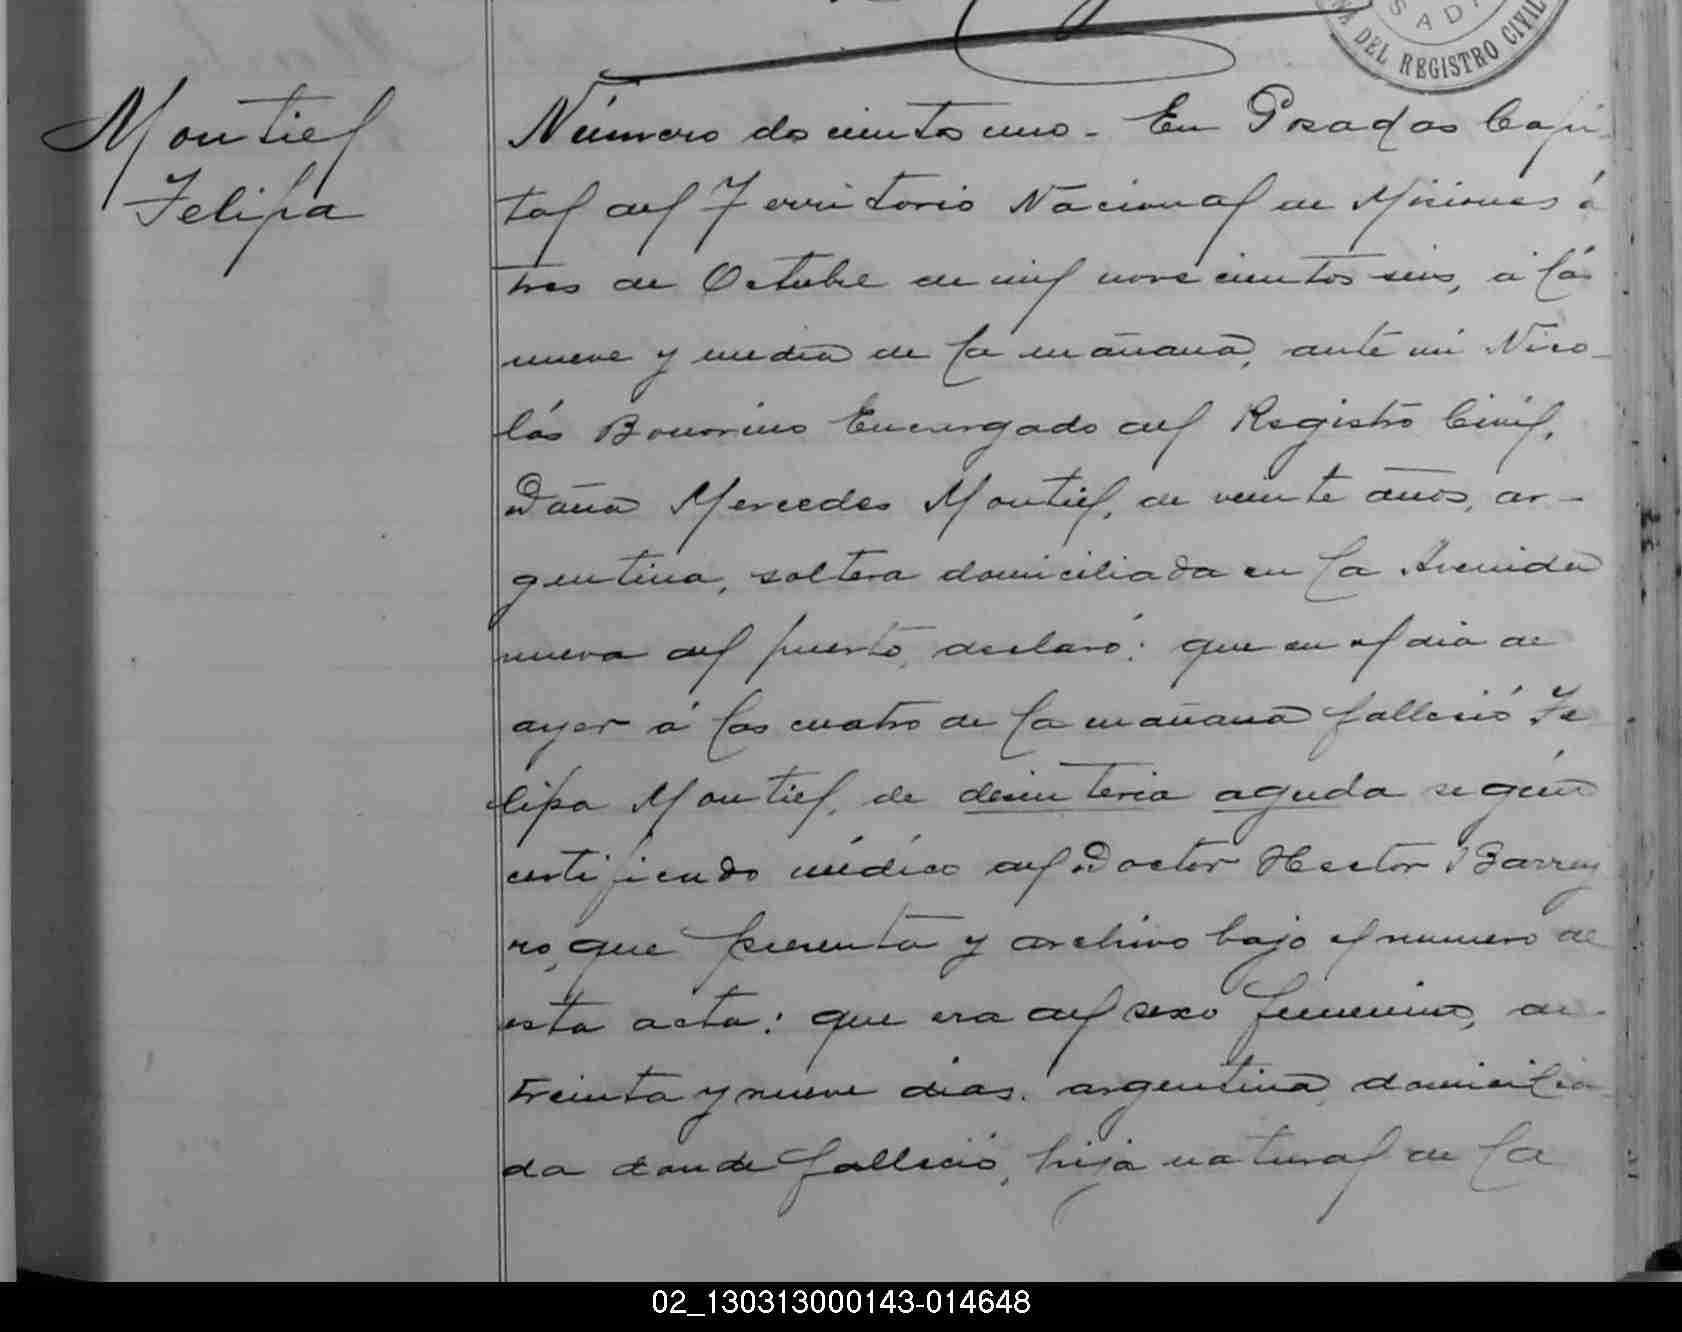 SADAS
NA DEL REGISTRO CIVIL
Montiel
Felipa
Número do cientos uno - En Posadas Capi-
tal del Territorio Nacional de Misiones á
tres de Octubre de mil novecientos seis, á las
nueve y media de la mañana, ante mi Nico-
lás Bonorino Encargado del Registro Civil,
Doña Mercedes Montiel, de veinte años, ar-
gentina, soltera domiciliada en la Avenida
nueva del puerto, declaró: que en el dia de
ayer á las cuatro de la mañana falleció Fe
lipa Montiel, de desinteria aguda según
certificado médico del Doctor Hector Barrey
ro, que presenta y archivo bajo el numero de
esta acta: que era del sexo femenino, de
treinta y nueve dias, argentina, domicilia
da donde falleció, hija natural de la
02_130313000143-014648